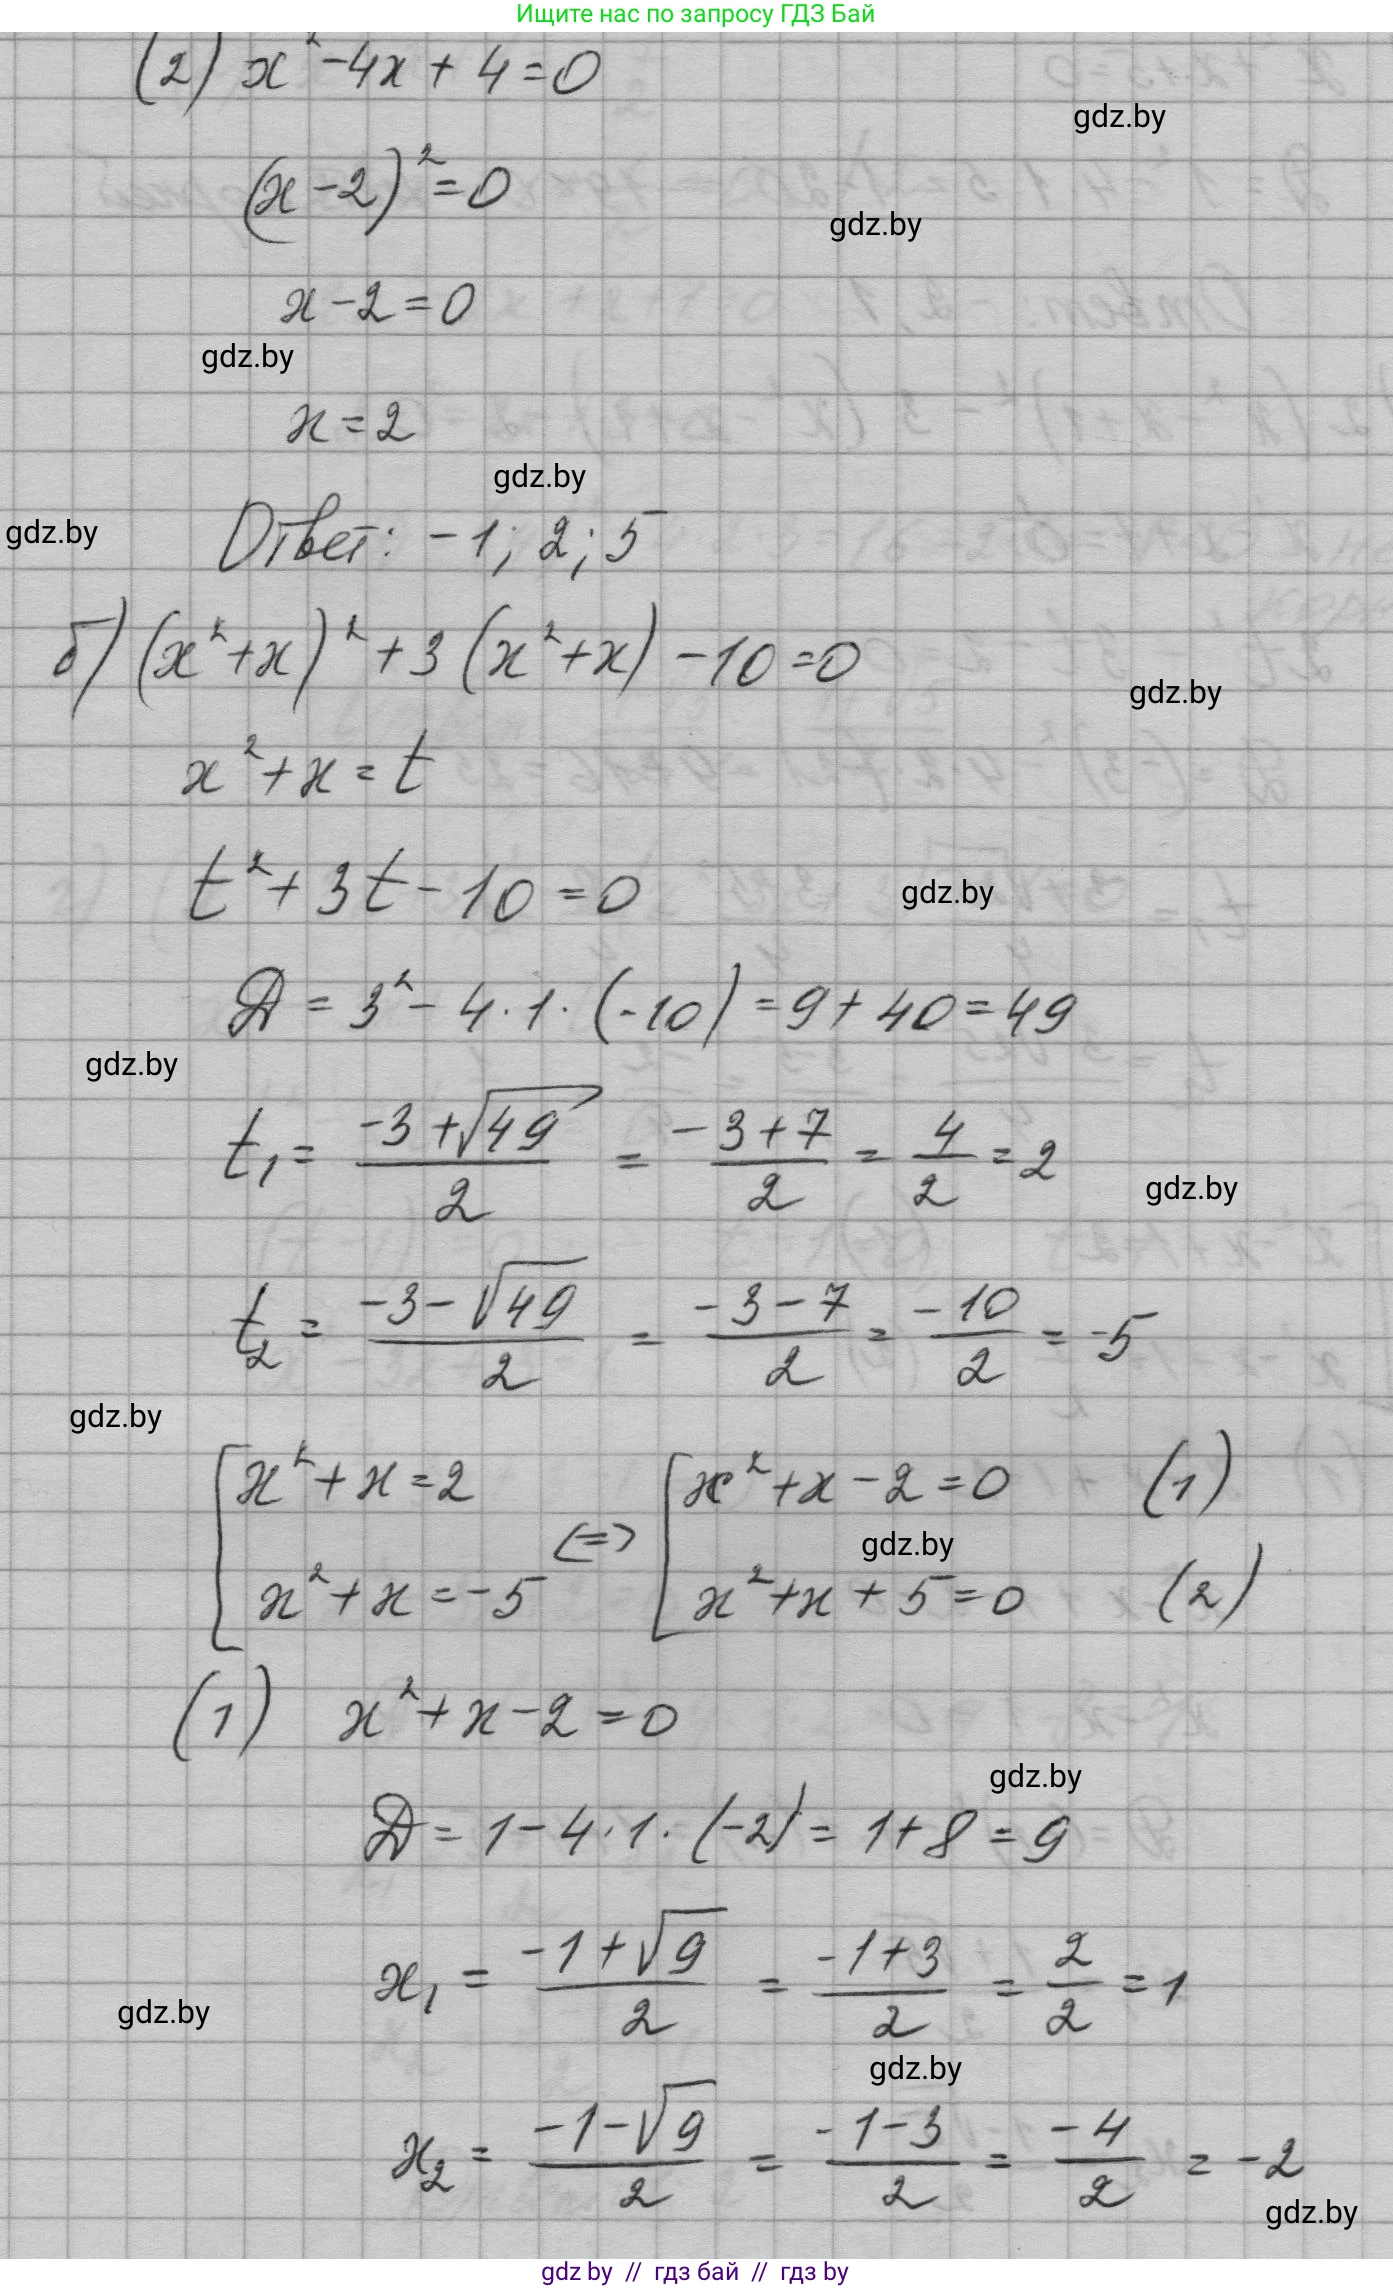 Ищите нас по запросу ГДЗ Бай
(2) x² - 4x + 4 = 0
gdz.by
(x - 2)² = 0
gdz.by
x - 2 = 0
gdz.by
x = 2
gdz.by
gdz.by
Ответ: -1; 2; 5
б) (x² + x)² + 3 (x² + x) - 10 = 0
gdz.by
x² + x = t
t² + 3t - 10 = 0
gdz.by
D = 3² - 4 · 1 · (-10) = 9 + 40 = 49
gdz.by
t₁ = (-3 + √49)/2 = (-3 + 7)/2 = 4/2 = 2
gdz.by
t₂ = (-3 - √49)/2 = (-3 - 7)/2 = -10/2 = -5
gdz.by
[ x² + x = 2 <=> [ x² + x - 2 = 0 (1)
gdz.by
x² + x = -5 x² + x + 5 = 0 (2)
(1) x² + x - 2 = 0
gdz.by
D = 1 - 4 · 1 · (-2) = 1 + 8 = 9
x₁ = (-1 + √9)/2 = (-1 + 3)/2 = 2/2 = 1
gdz.by
gdz.by
x₂ = (-1 - √9)/2 = (-1 - 3)/2 = -4/2 = -2
gdz.by
gdz by // гдз бай // гдз by